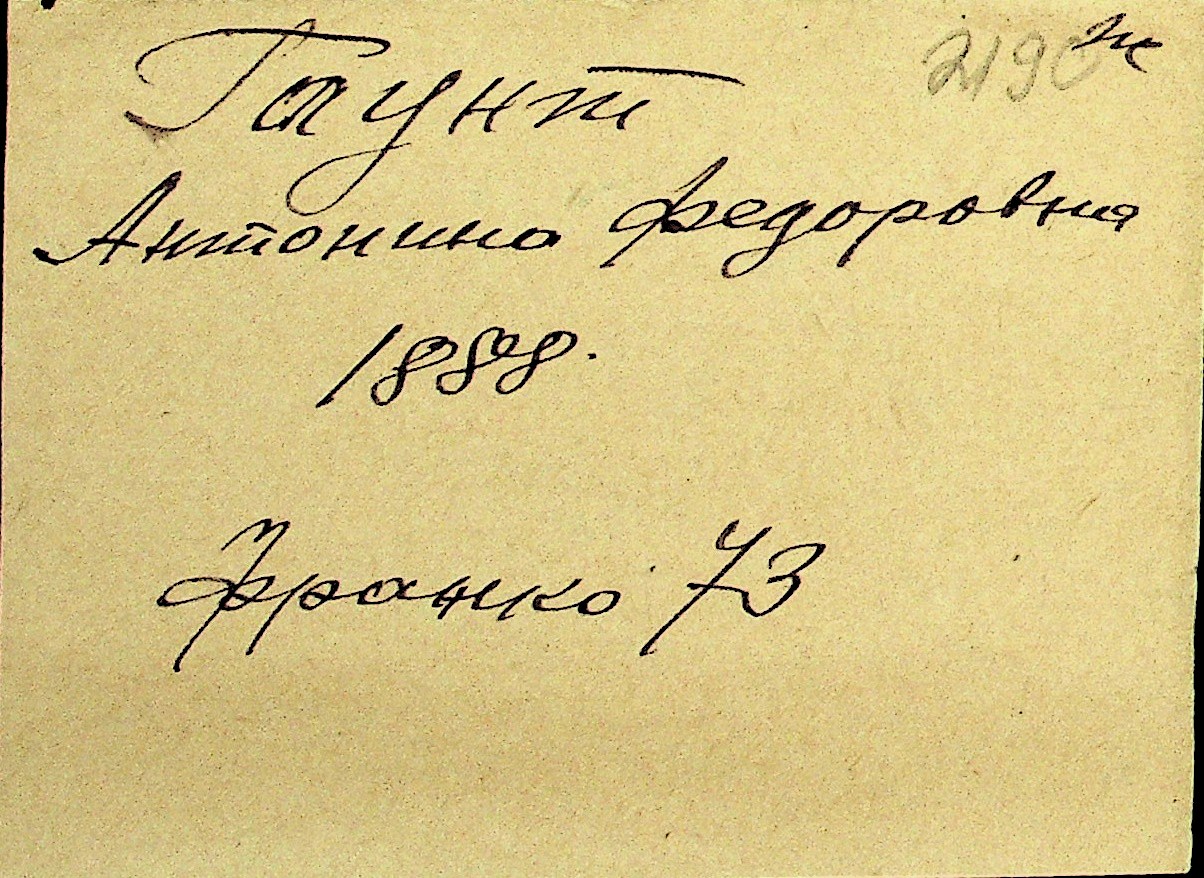 Гаунт
Антонина Федоровна
1888.
Франко 73